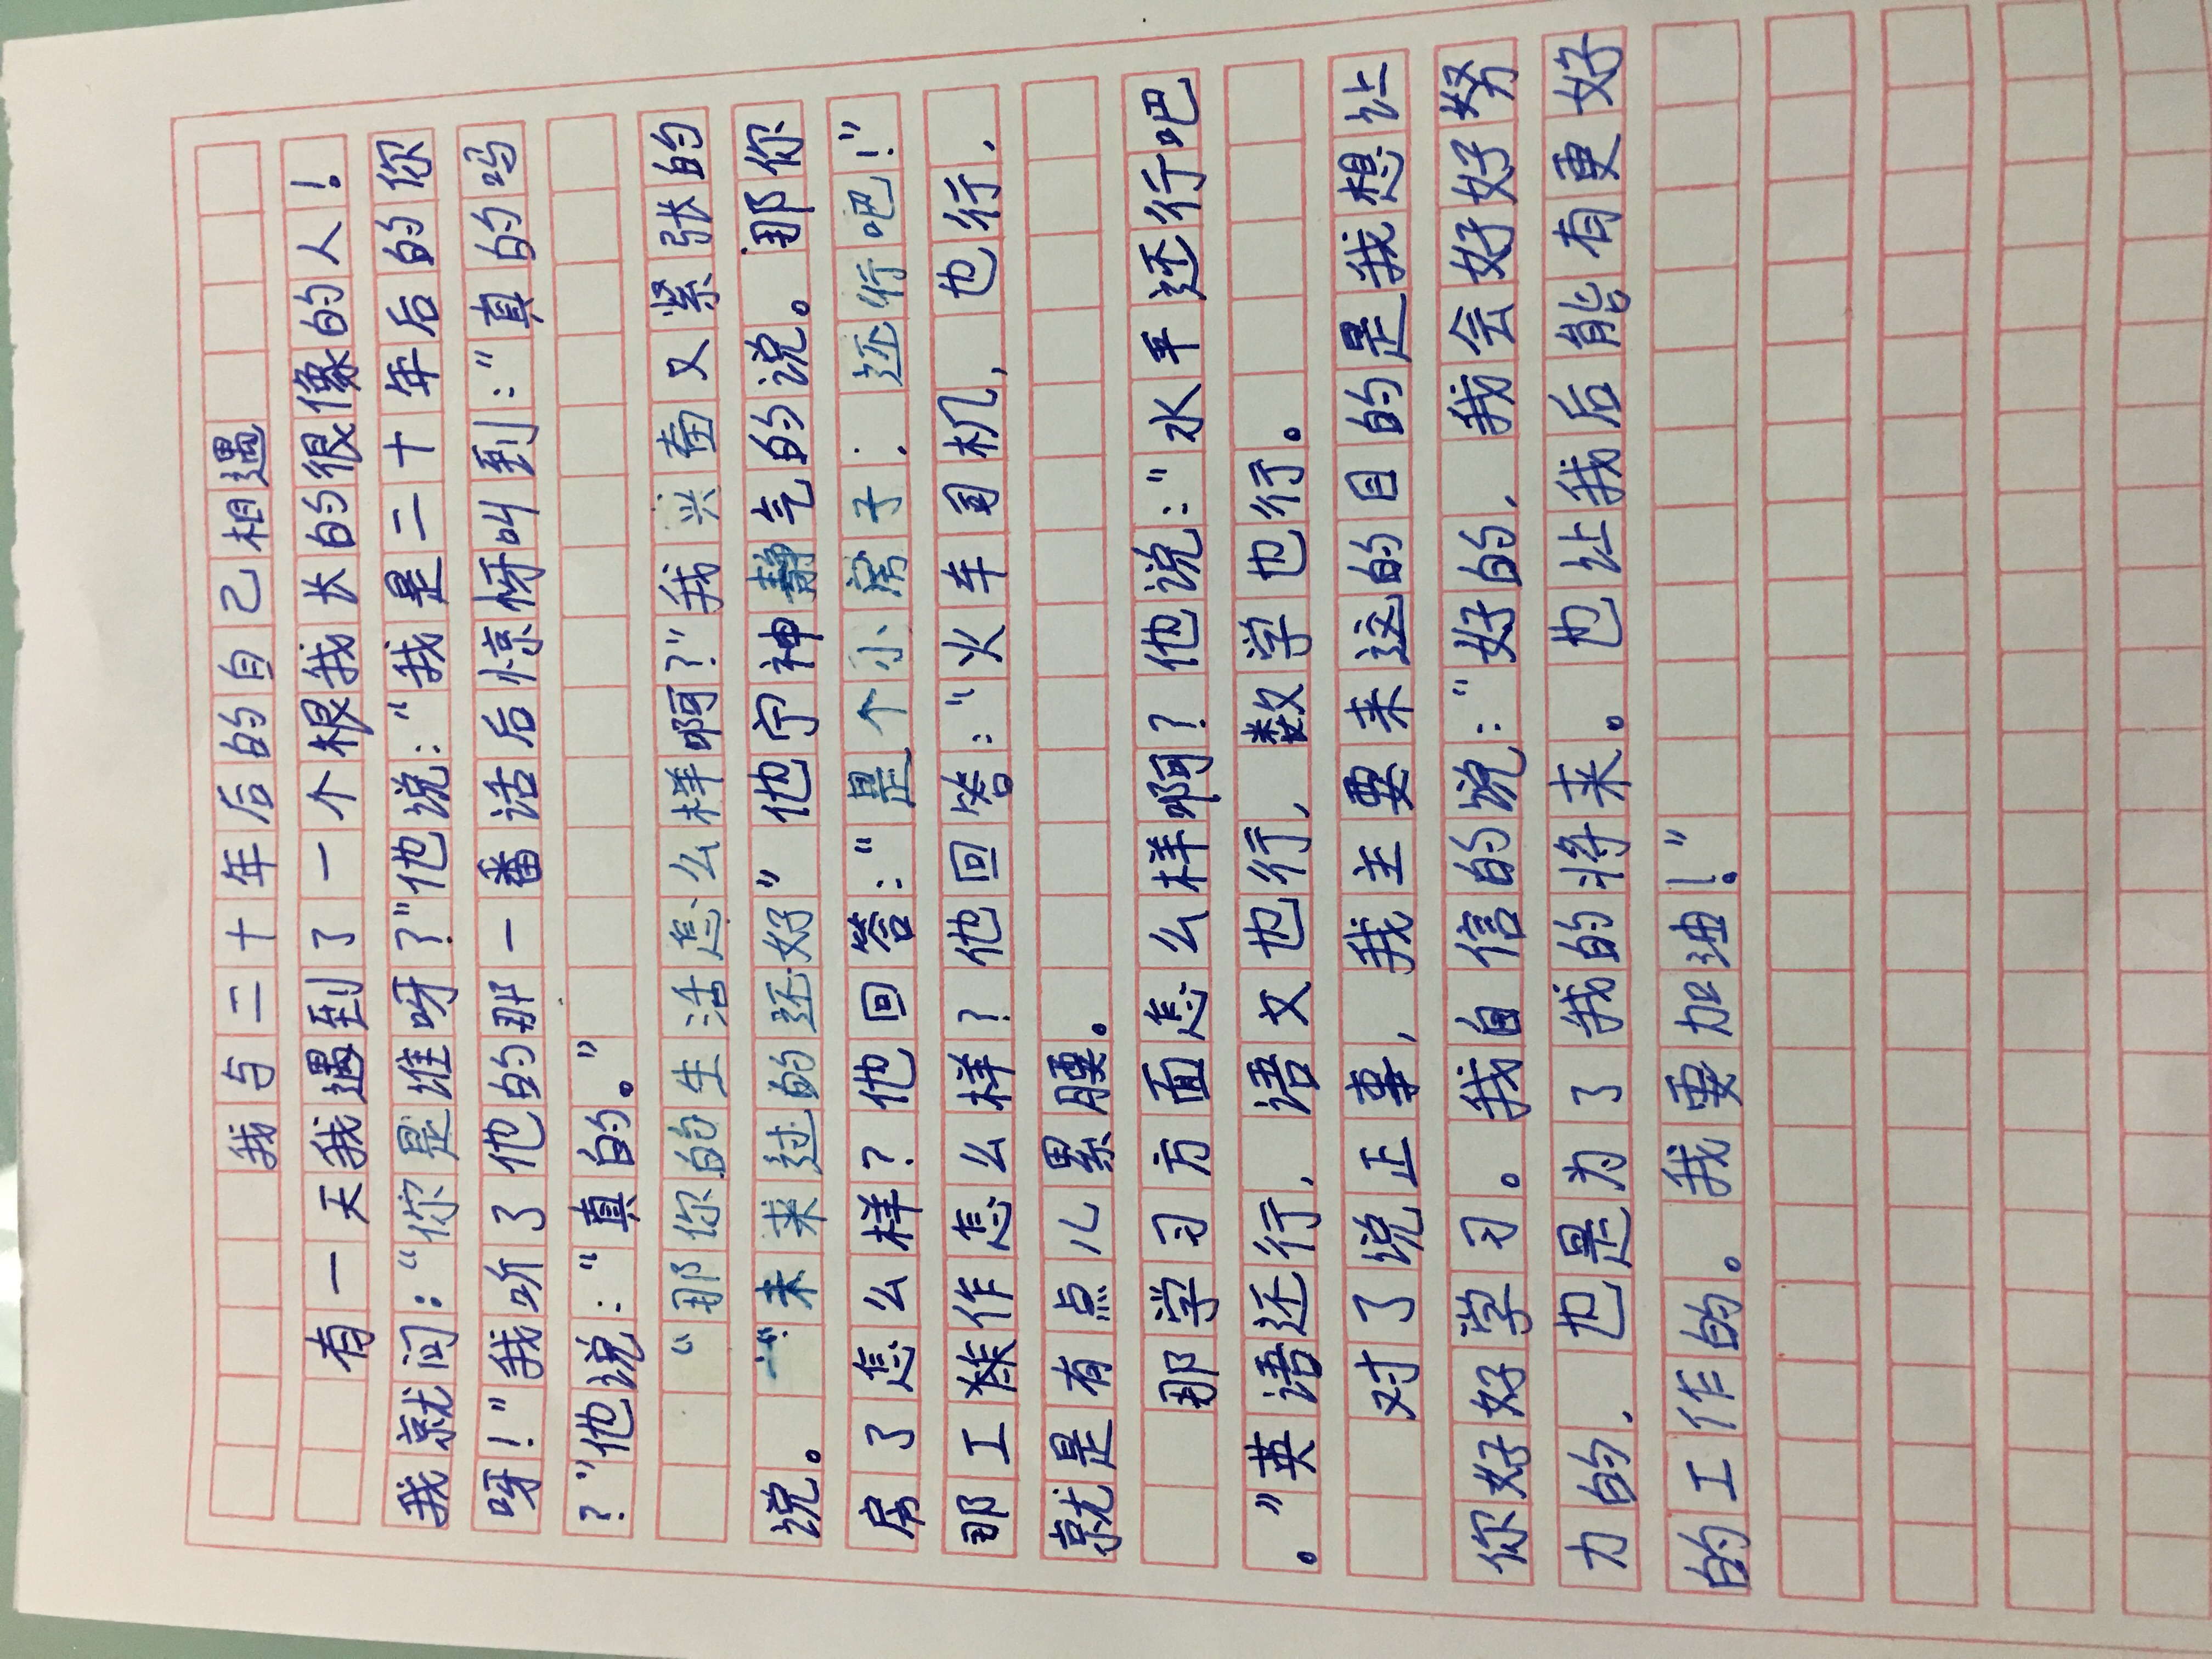 我与二十年后的自己相遇
有一天我遇到了一个根我长的很像的人！
我就问：“你是谁呀？”他说：“我是二十年后的你
呀！”我听了他的那一番话后惊讶叫到：“真的吗
？”他说：“真的。”
“那你的生活怎么样啊？”我兴奋又紧张的
说。“来来过的还好”他宁神静气的说。那你
房了怎么样？他回答：“是个小房子．还行吧！”
那工作怎么样？他回答：“火车司机，也行，
就是有点儿累腰。
那学习方面怎么样啊？他说：“水平还行吧
。”英语还行，语文也行，数学也行。
对了说正事，我主要来这的目的是我想让
你好好学习。我自信的说：“好的，我会好好努
力的，也是为了我的将来。也让我后能有更好
的工作的。我要加油！”